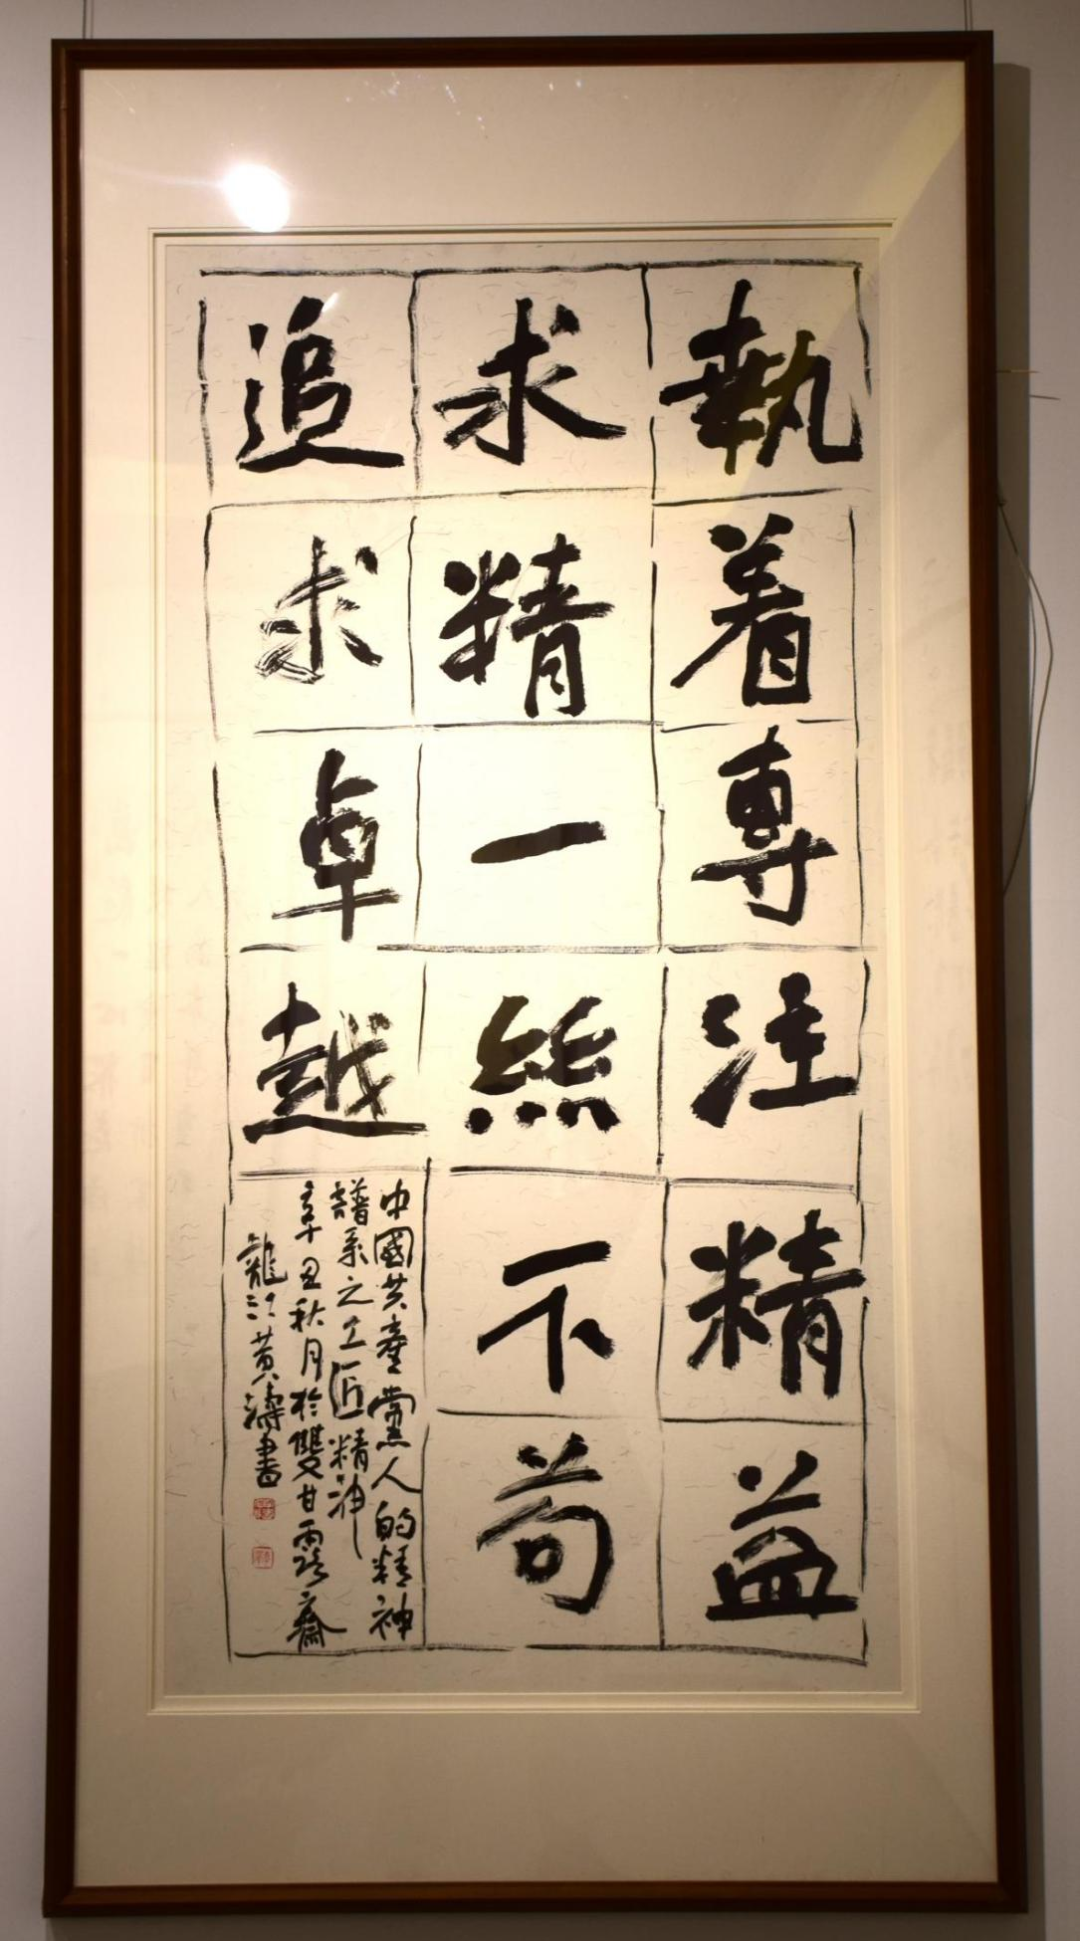 執着專注精益
求精一絲不苟
追求卓越
中國共產黨人的精神
譜系之工匠精神
辛丑秋月於雙甘露齋
龍江黃濤書